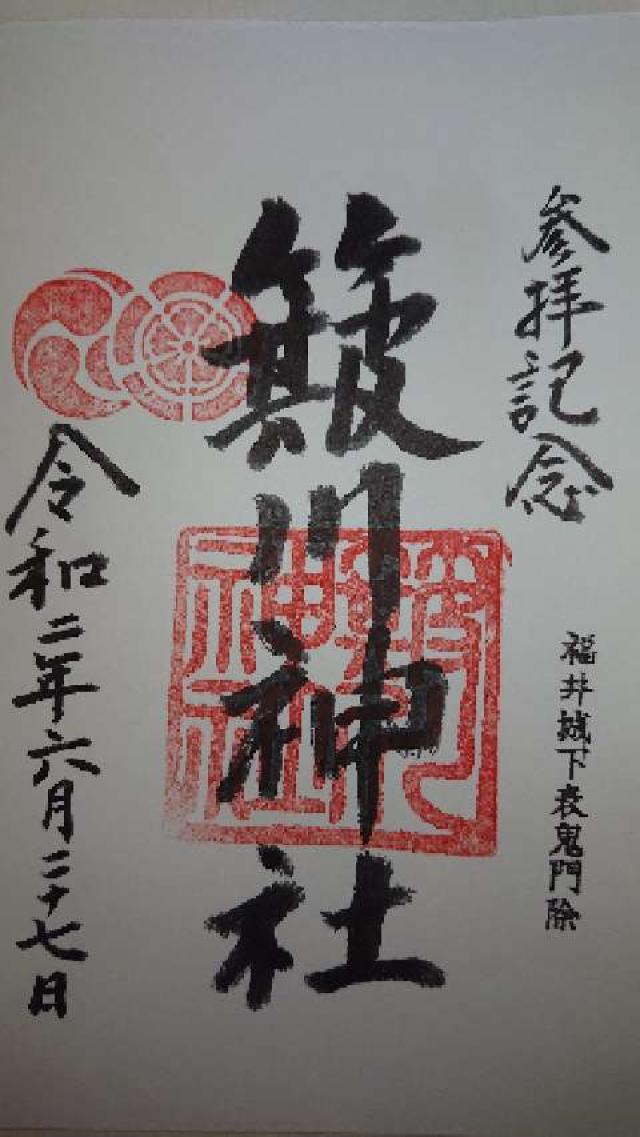 参拝記念
福井城下表鬼門除
簸川神社
令和二年六月二十七日
簸川神社